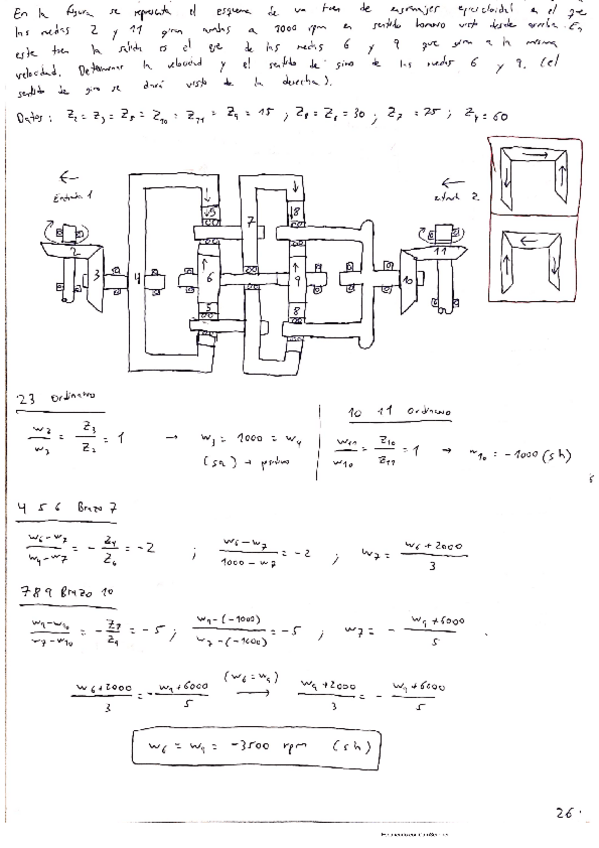 En la figura se representa el esquema de un tren de engranajes epicicloidal en el que
las ruedas 2 y 11 giran ambas a 1000 rpm en sentido horario visto desde arriba. En
este tren la salida es el eje de las ruedas 6 y 9 que giran a la misma
velocidad. Determinar la velocidad y el sentido de giro de las ruedas 6 y 9. (el
sentido de giro se dará visto de la derecha).
Datos: Z2 = Z3 = Z5 = Z10 = Z11 = Z9 = 15 ; Z8 = Z6 = 30 ; Z7 = 75 ; Z4 = 60
Entrada 1
entrada 2.
2
3
4
5
6
5
7
8
9
8
10
11
23 ordinario
w2/w3 = Z3/Z2 = 1 → w3 = 1000 = w4
(sa) → positivo
10 11 ordinario
w11/w10 = Z10/Z11 = 1 → w10 = -1000 (sh)
4 5 6 Brazo 7
(w6-w7)/(w4-w7) = -Z4/Z6 = -2 ; (w6-w7)/(1000-w7) = -2 ; w7 = (w6+2000)/3
789 Brazo 10
(w9-w10)/(w7-w10) = -Z7/Z9 = -5 ; (w9-(-1000))/(w7-(-1000)) = -5 ; w7 = -(w9+6000)/5
(w6+2000)/3 = -(w9+6000)/5 (w6=w9) → (w9+2000)/3 = -(w9+6000)/5
w6 = w9 = -3500 rpm (sh)
26.